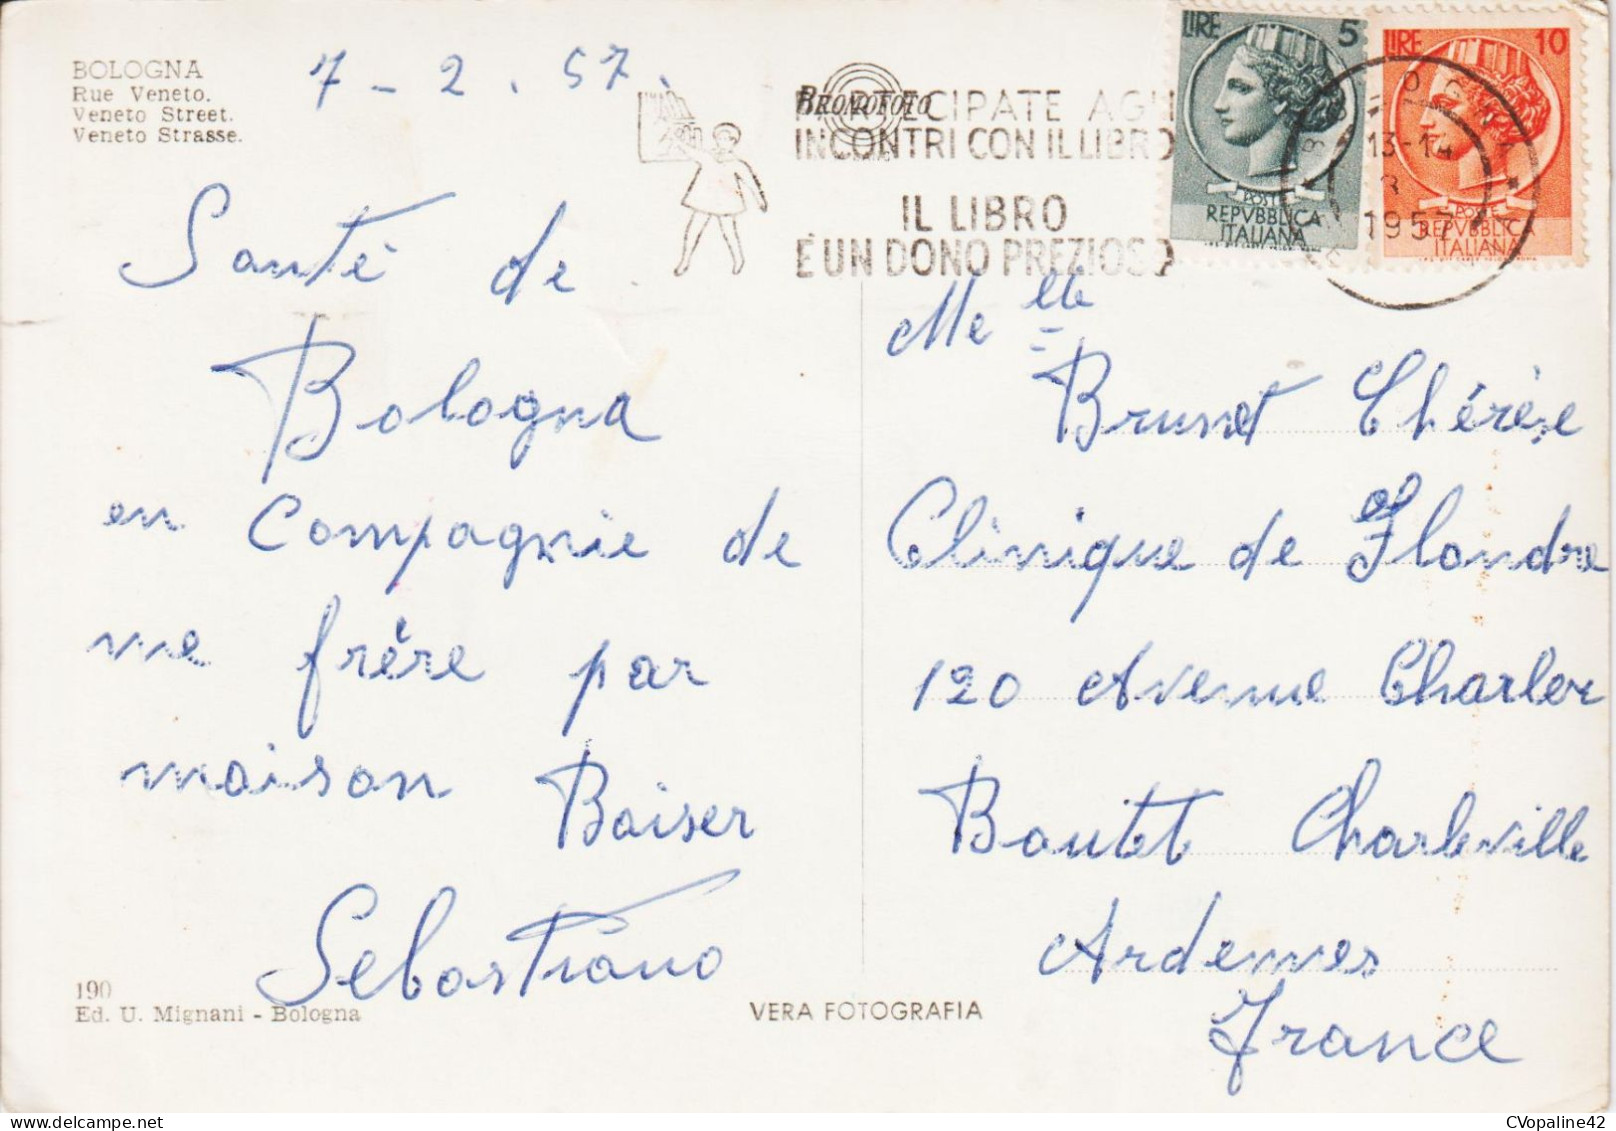 BOLOGNA
Rue Veneto.
Veneto Street.
Veneto Strasse.
7-2.57.
BROMOFOTO
PARTECIPATE AGLI
INCONTRI CON IL LIBRO
IL LIBRO
È UN DONO PREZIOSO
LIRE 5
POSTE
REPVBBLICA
ITALIANA
LIRE 10
POSTE
REPVBBLICA
ITALIANA
BOLOGNA
13-14
8
1957
Santé de
Bologna
en Compagnie de
me frére par
maison Baiser
Sebastiano
Melle
Brunet Thérèse
Clinique de Flandre
120 Avenue Charler
Boutet Charleville
Ardennes
France
190
Ed. U. Mignani - Bologna
VERA FOTOGRAFIA
CVopaline42